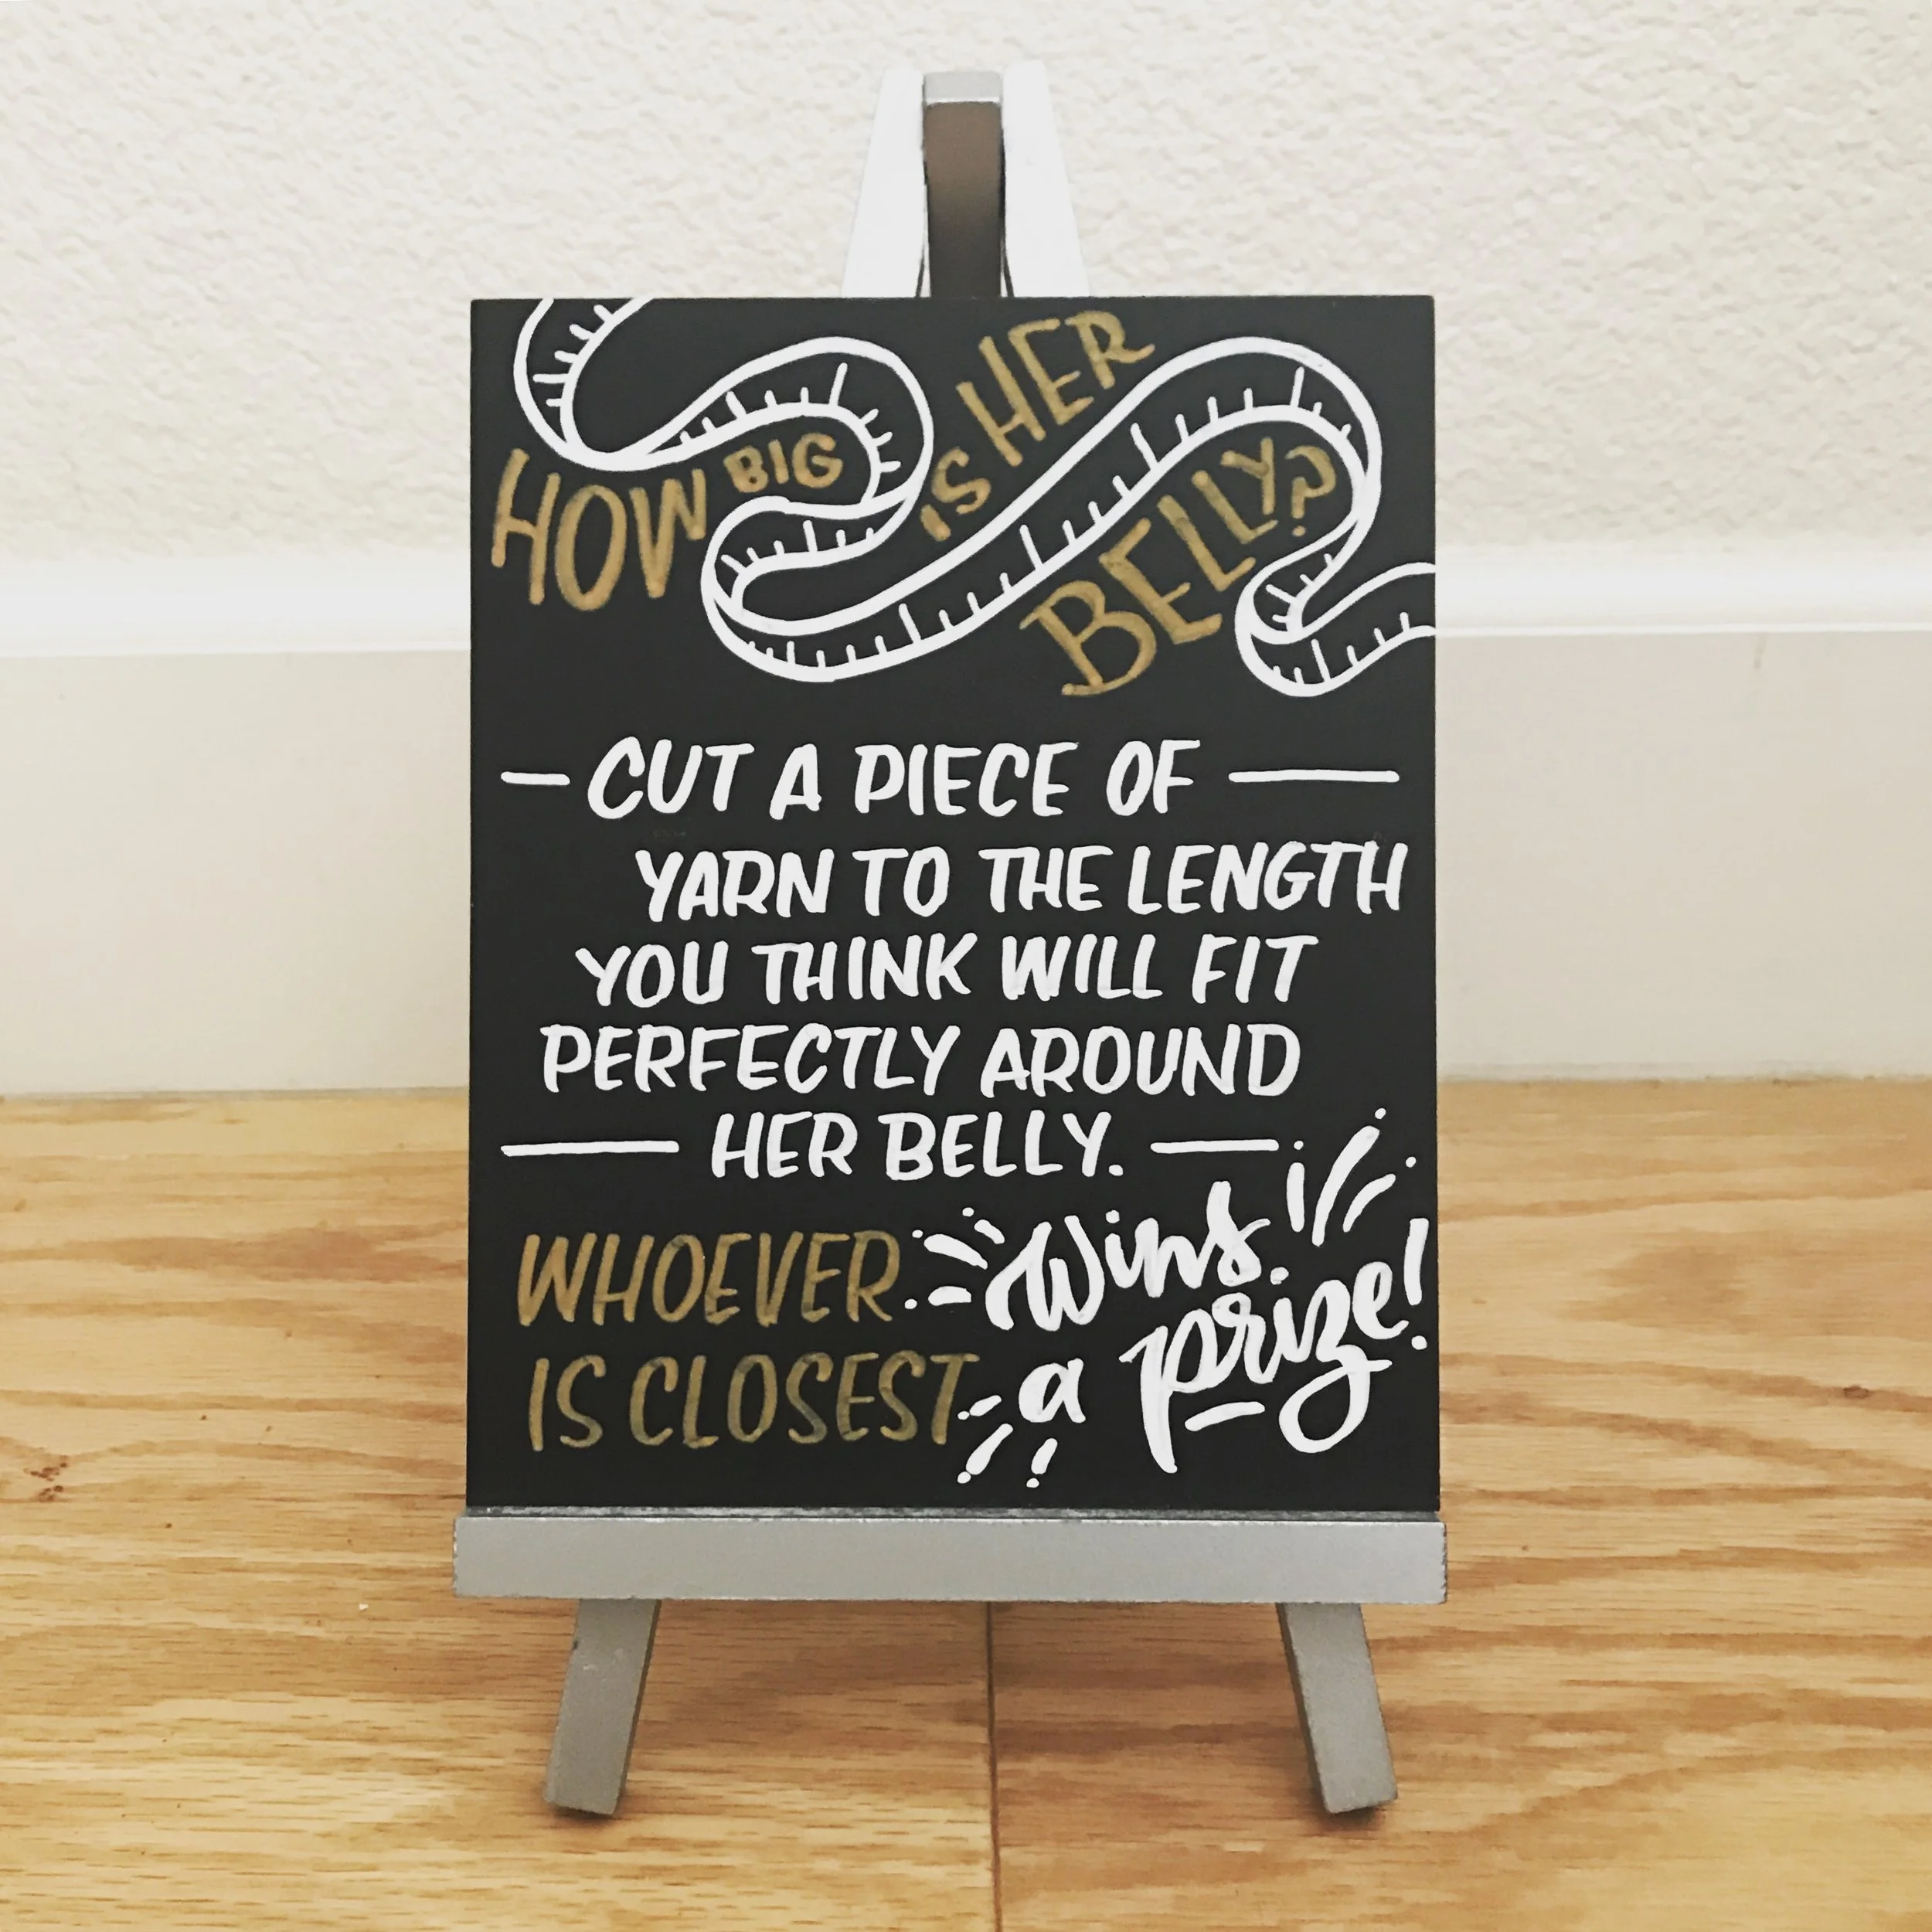 HOW BIG IS HER
BELLY?
CUT A PIECE OF
YARN TO THE LENGTH
YOU THINK WILL FIT
PERFECTLY AROUND
HER BELLY.
WHOEVER wins
IS CLOSEST a prize!